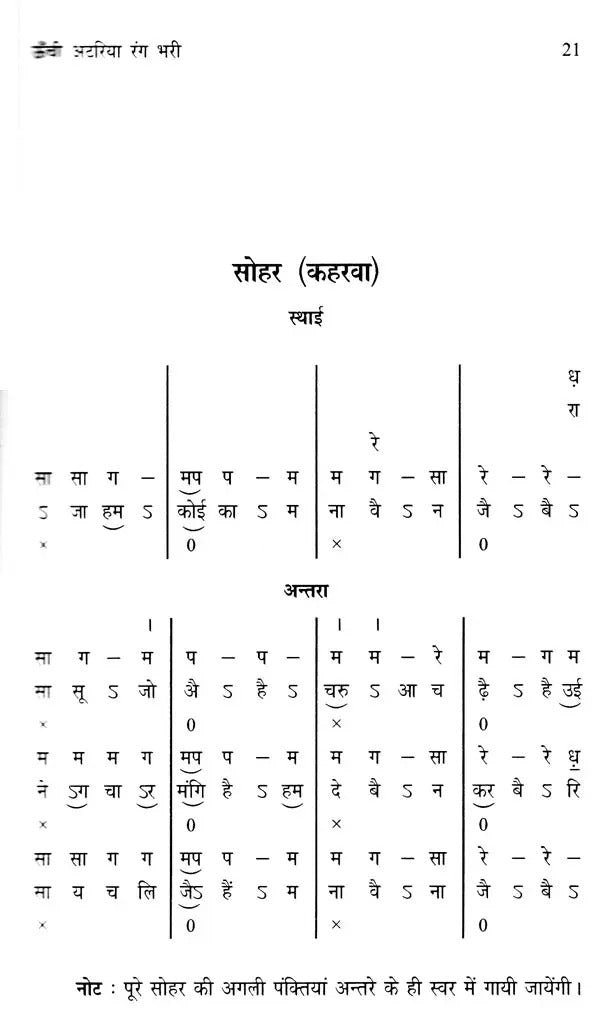 ऊँची अटरिया रंग भरी 21
सोहर (कहरवा)
स्थाई
ध़
रा
रे
सा सा ग – मप प – म म ग – सा रे – रे –
ऽ जा हम ऽ कोई का ऽ म ना वै ऽ न जै ऽ बै ऽ
× 0 × 0
अन्तरा
। । ।
सा ग – म प – प – म म – रे म – ग म
सा सू ऽ जो अै ऽ है ऽ चरु ऽ आ च ढ़ै ऽ है उई
× 0 × 0
म म म ग मप प – म म ग – सा रे – रे ध़
ने ऽग चा ऽर मंगि है ऽ हम दे बै ऽ न कर बै ऽ रि
× 0 × 0
सा सा ग ग मप प – म म ग – सा रे – रे –
मा य च लि जैऽ हैं ऽ म ना वै ऽ ना जै ऽ बै ऽ
× 0 × 0
नोट : पूरे सोहर की अगली पंक्तियां अन्तरे के ही स्वर में गायी जायेंगी।